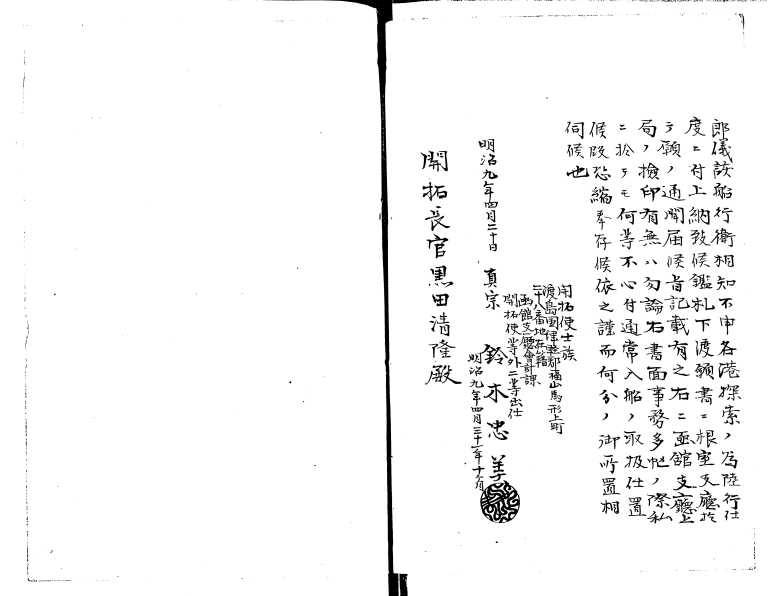 郎儀該船行衛相知不申各港探索ノ為陸行仕
度ニ付上納致候鑑札下渡願書ニ根室支廳於
テ願ノ通聞届候旨記載有之右ニ函館支廳上
局ノ撿印有無ハ勿論右書面事務多忙ノ際私
ニ於テモ何等不心付通常入船ノ取扱仕置
候段恐縮奉存候依之謹而何分ノ御所置相
伺候也
開拓使士族
渡島國津軽郡福山馬形上町
三十八番地在籍
函館支廳會計課
開拓使等外二等出仕
真宗 鈴木忠善
明治九年四月二十日
明治九年四月三十一年十ヶ月
開拓長官黒田清隆殿